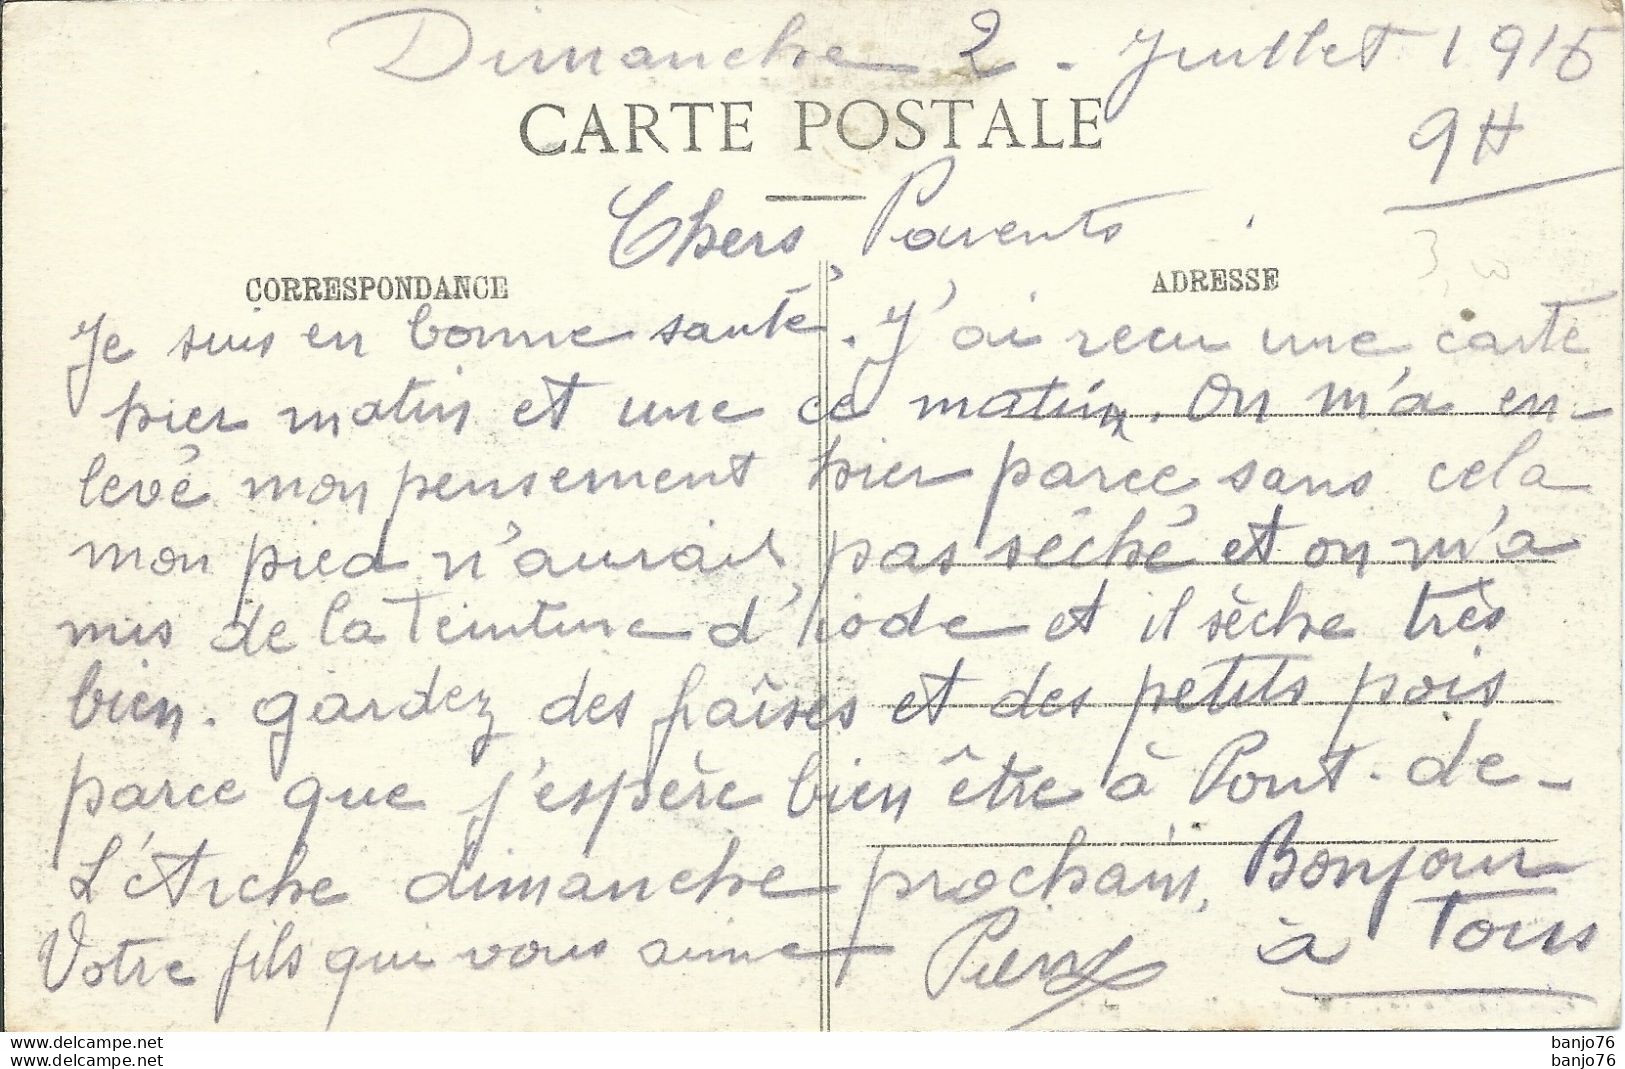 Dimanche 2 - Juillet 1916
CARTE POSTALE
9H
Chers Parents
CORRESPONDANCE
ADRESSE
Je suis en bonne santé. J'ai recu une carte
hier matin et une ce matin. On m'a en-
levé mon pensement hier parce sans cela
mon pied n'aurait pas séché et on m'a
mis de la Teinture d'iode et il sèche très
bien. gardez des fraîses et des petits pois
parce que j'espère bien être à Pont-de-
L'Arche dimanche prochain. Bonjour
à Tous
Votre fils qui vous aime Pierre
banjo76
banjo76
banjo76
banjo76